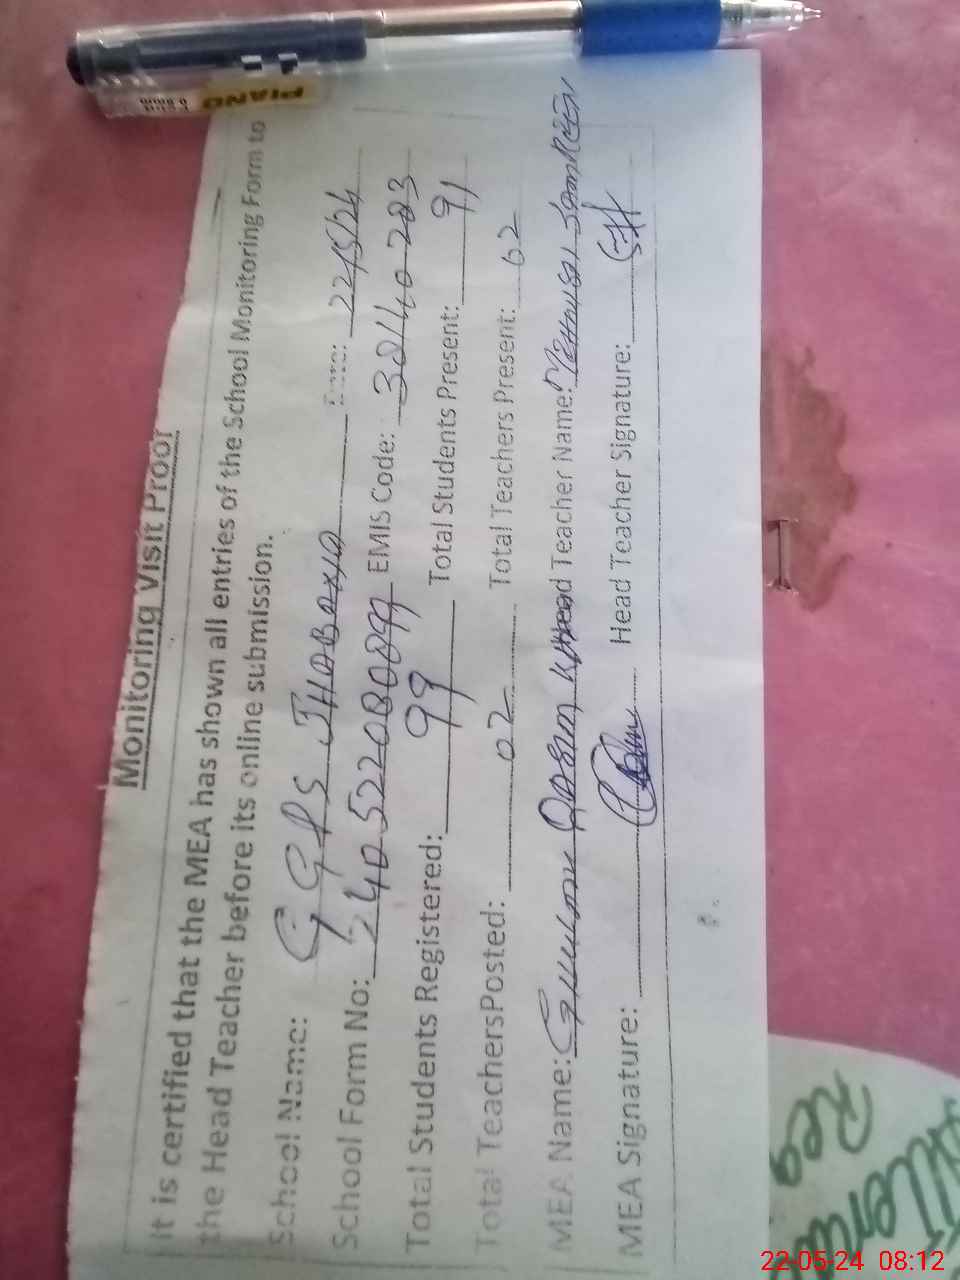 PIANO
Monitoring Visit Proof
It is certified that the MEA has shown all entries of the School Monitoring Form to
the Head Teacher before its online submission.
School Name: GGPS JHOBOXYO Date: 22/5/24
School Form No: 24052208099 EMIS Code: 38140 203
Total Students Registered: 99 Total Students Present: 91
Total Teachers Posted: 02 Total Teachers Present: 02
MEA Name: Ghulam Qasim Head Teacher Name:
MEA Signature: Head Teacher Signature:
Reg
22-05-24 08:12